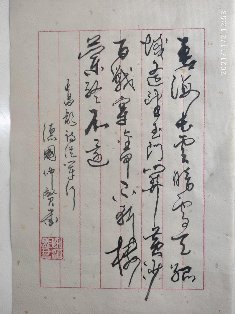 青海長雲暗雪山孤
城遥望玉門關黄沙
百戰穿金甲不破樓
蘭終不還
王昌齡詩從軍行